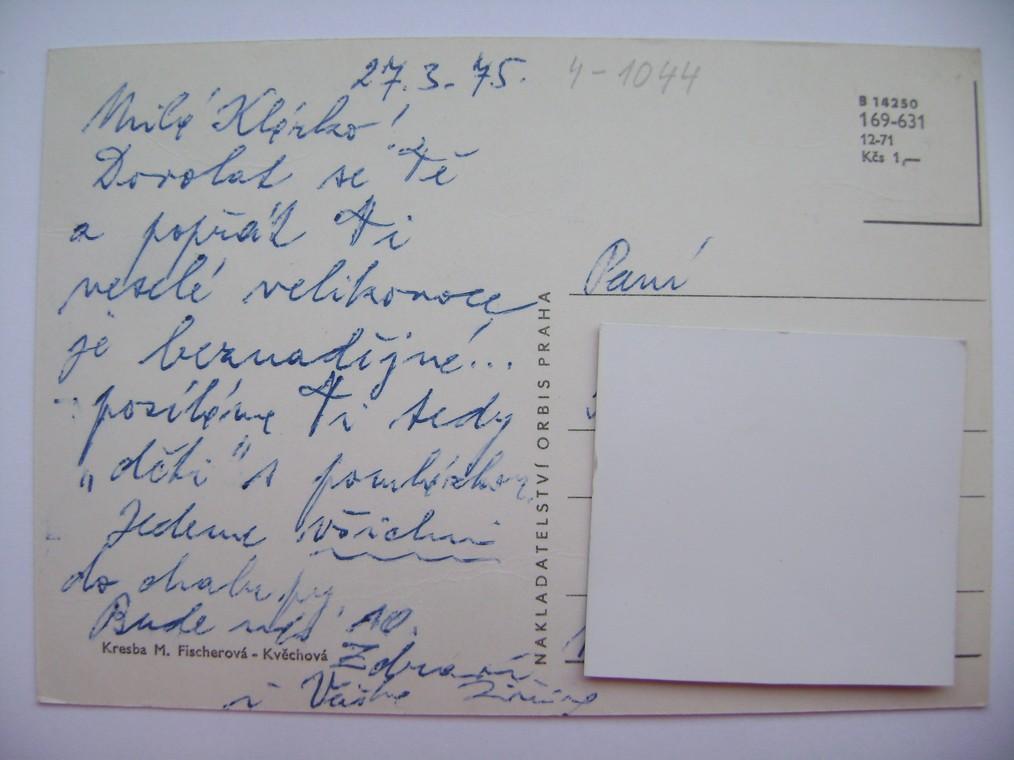 27.3.-75.
4-1044
Milá Klárko!
Dovolat se Tě
a popřát Ti
veselé velikonoce
je beznadějné...
posíláme Ti tedy
„děti" s pomlázkou
Jedeme všichni
do chalupy
Bude nás 10.
Zdraví
i Vaške
Kresba M. Fischerová - Kvěchová
NAKLADATELSTVÍ ORBIS PRAHA
B 14250
169-631
12-71
Kčs 1,—
Paní